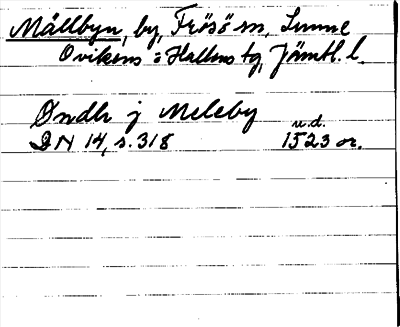 Mållbyn, by, Frösö sn, Sunne
Ovikens o Hallens tg, Jämtl. l.
Øndh j Meleby
u.d.
DN 14, s. 318 1523 or.